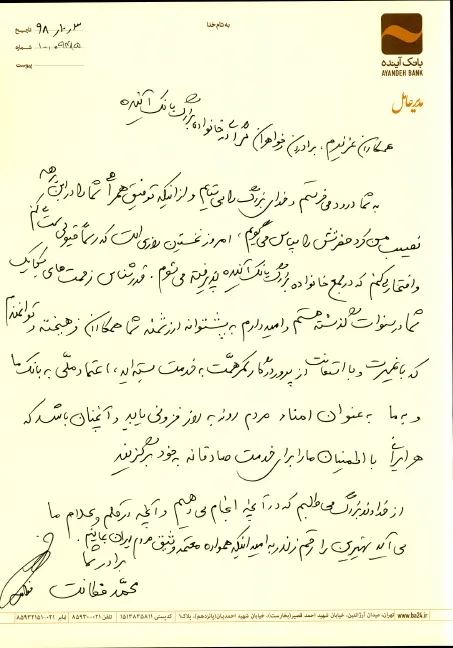 به نام خدا
تاریخ ۹۸
شماره
پیوست
بانک آینده
AYANDEH BANK
مدیرعامل
همکاران عزیزم، برادران و خواهران گرانقدر خانواده بزرگ بانک آینده
به شما درود می‌فرستم و خدای بزرگ را می‌ستایم و از اینکه توفیق همراهی شما را در این برهه
نصیب من کرد حضرتش را سپاس می‌گویم، امروز نخستین روزی است که رسماً قبول می‌کنم
و افتخار می‌کنم که در جمع خانواده بزرگ بانک آینده پذیرفته می‌شوم. قدرشناس زحمت‌های یکایک
شما در سنوات گذشته هستم و امید دارم به پشتوانه ارزشمند شما همکاران فرهیخته و توانمندم
که با غیرت و با استعانت از پروردگار کمر همّت به خدمت بسته‌اید، اعتماد ملّی به بانک ما
و به ما به عنوان امناء مردم روز به روز فزونی یابد و آنچنان باشد که
هر ایرانی با اطمینان ما را برای خدمت صادقانه به خود برگزیند
از خداوند بزرگ می‌طلبم که در آنچه انجام می‌دهیم و آنچه در قلم و کلام ما
می‌آید بهترین را رقم زند به امید اینکه همواره معتمد و وثیق مردم ایران بمانیم.
برادر شما
محمّد فطانت
www.ba24.ir تهران، میدان آرژانتین، خیابان شهید احمد قصیر (بخارست)، خیابان شهید احمدیان (پانزدهم)، پلاک۱ کدپستی ۱۵۱۳۸۳۵۸۱۱ تلفن ۰۲۱-۸۵۹۳۰ نمابر ۰۲۱-۸۵۹۳۲۱۵۱